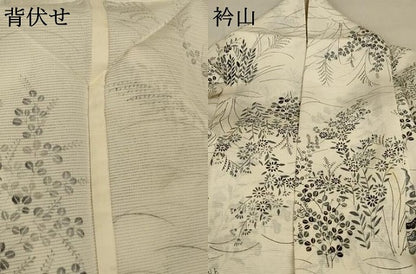 背伏せ
衿山